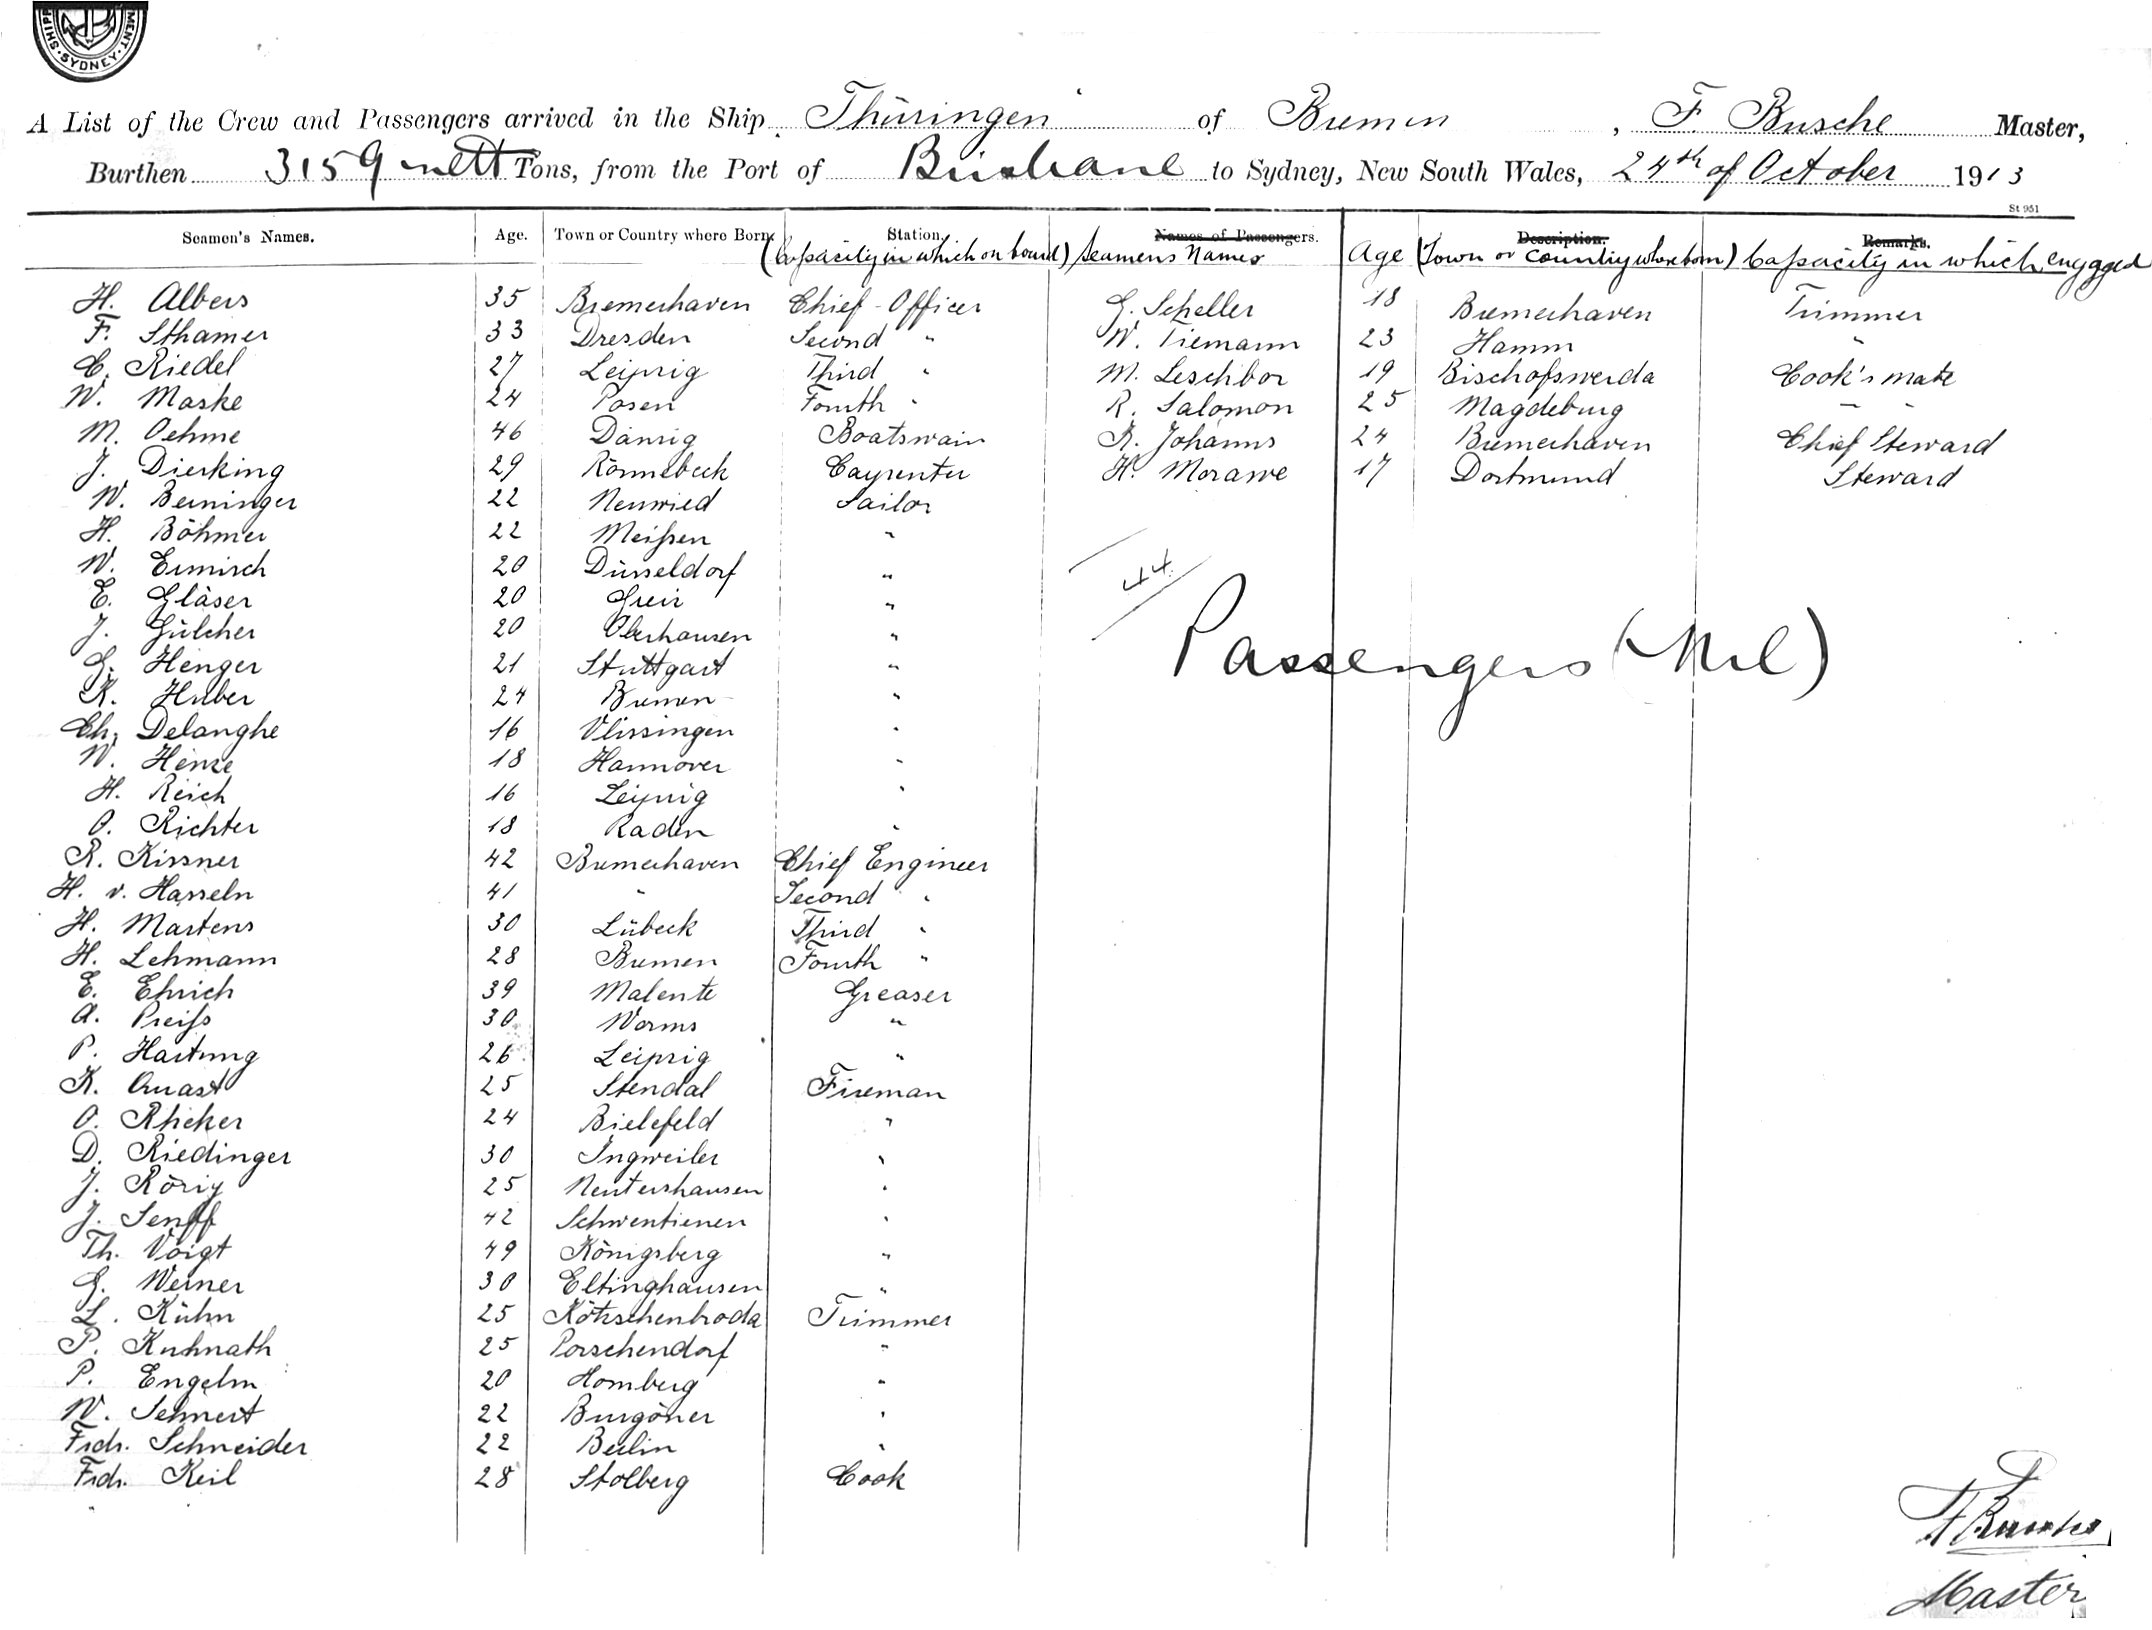 MENT · A
SHIPP
· SYDNEY ·
A List of the Crew and Passengers arrived in the Ship Thüringen of Bremen, F. Busche Master,
Burthen 3159 nett Tons, from the Port of Brisbane to Sydney, New South Wales, 24th of October 1913
St 951
Seamen's Names. Age. Town or Country where Born. Station. Names of Passengers. Description. Remarks.
(Capacity in which on board) Seamens Names Age (Town or Country where born) Capacity in which engaged
H. Albers 35 Bremerhaven Chief-Officer G. Scheller 18 Bremerhaven Trimmer
F. Sthamer 33 Dresden Second " W. Tiemann 23 Hamm "
C. Riedel 27 Leipzig Third " M. Leschbor 19 Bischofswerda Cook's mate
W. Maske 24 Posen Fourth " R. Salomon 25 Magdeburg " "
M. Oehme 46 Danzig Boatswain K. Johanns 24 Bremerhaven Chief Steward
J. Dierking 29 Rönnebeck Carpenter H. Morawe 17 Dortmund Steward
W. Beininger 22 Neuwied Sailor
H. Böhmer 22 Meißen "
W. Ermisch 20 Düsseldorf "
E. Gläser 20 Greiz "
J. Gülcher 20 Oberhausen "
G. Henger 21 Stuttgart "
K. Huber 24 Bremen "
Ch. Delanghe 16 Vlissingen "
W. Heinze 18 Hannover "
H. Reich 16 Leipzig "
O. Richter 18 Raden "
R. Kissner 42 Bremerhaven Chief Engineer
H. v. Hasseln 41 " Second "
H. Martens 30 Lübeck Third "
H. Lehmann 28 Bremen Fourth "
E. Ehrich 39 Malente Greaser
A. Preiß 30 Worms "
P. Hartung 26 Leipzig "
K. Quast 25 Stendal Fireman
O. Rheker 24 Bielefeld "
D. Riedinger 30 Ingweiler "
J. Rörig 25 Nentershausen "
J. Senff 42 Schwentienen "
Th. Voigt 49 Königsberg "
G. Werner 30 Eltinghausen "
L. Kühn 25 Kötzschenbroda Trimmer
P. Kuhnath 25 Porschendorf "
P. Engelm 20 Homberg "
W. Sehnert 22 Burgörner "
Frdr. Schneider 22 Berlin "
Frdr. Keil 28 Stolberg Cook
44
Passengers (Nil)
F Busche
Master